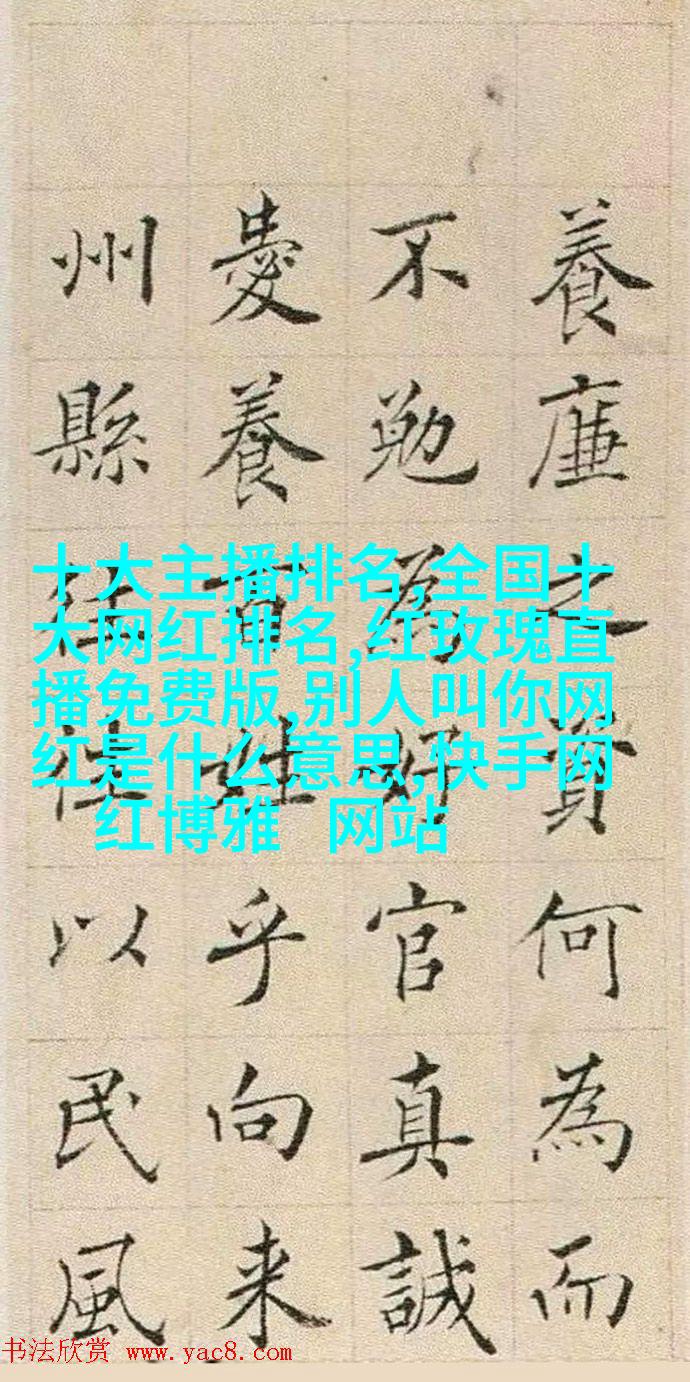 養廉之資何為而
不勉為好官真誠
愛養百姓乎向来
州縣往往以民風
十大主播排名,全国十
大网红排名,红玫瑰直
播免费版,别人叫你网
红是什么意思,快手网
红博雅 网站
书法欣赏 www.yac8.com